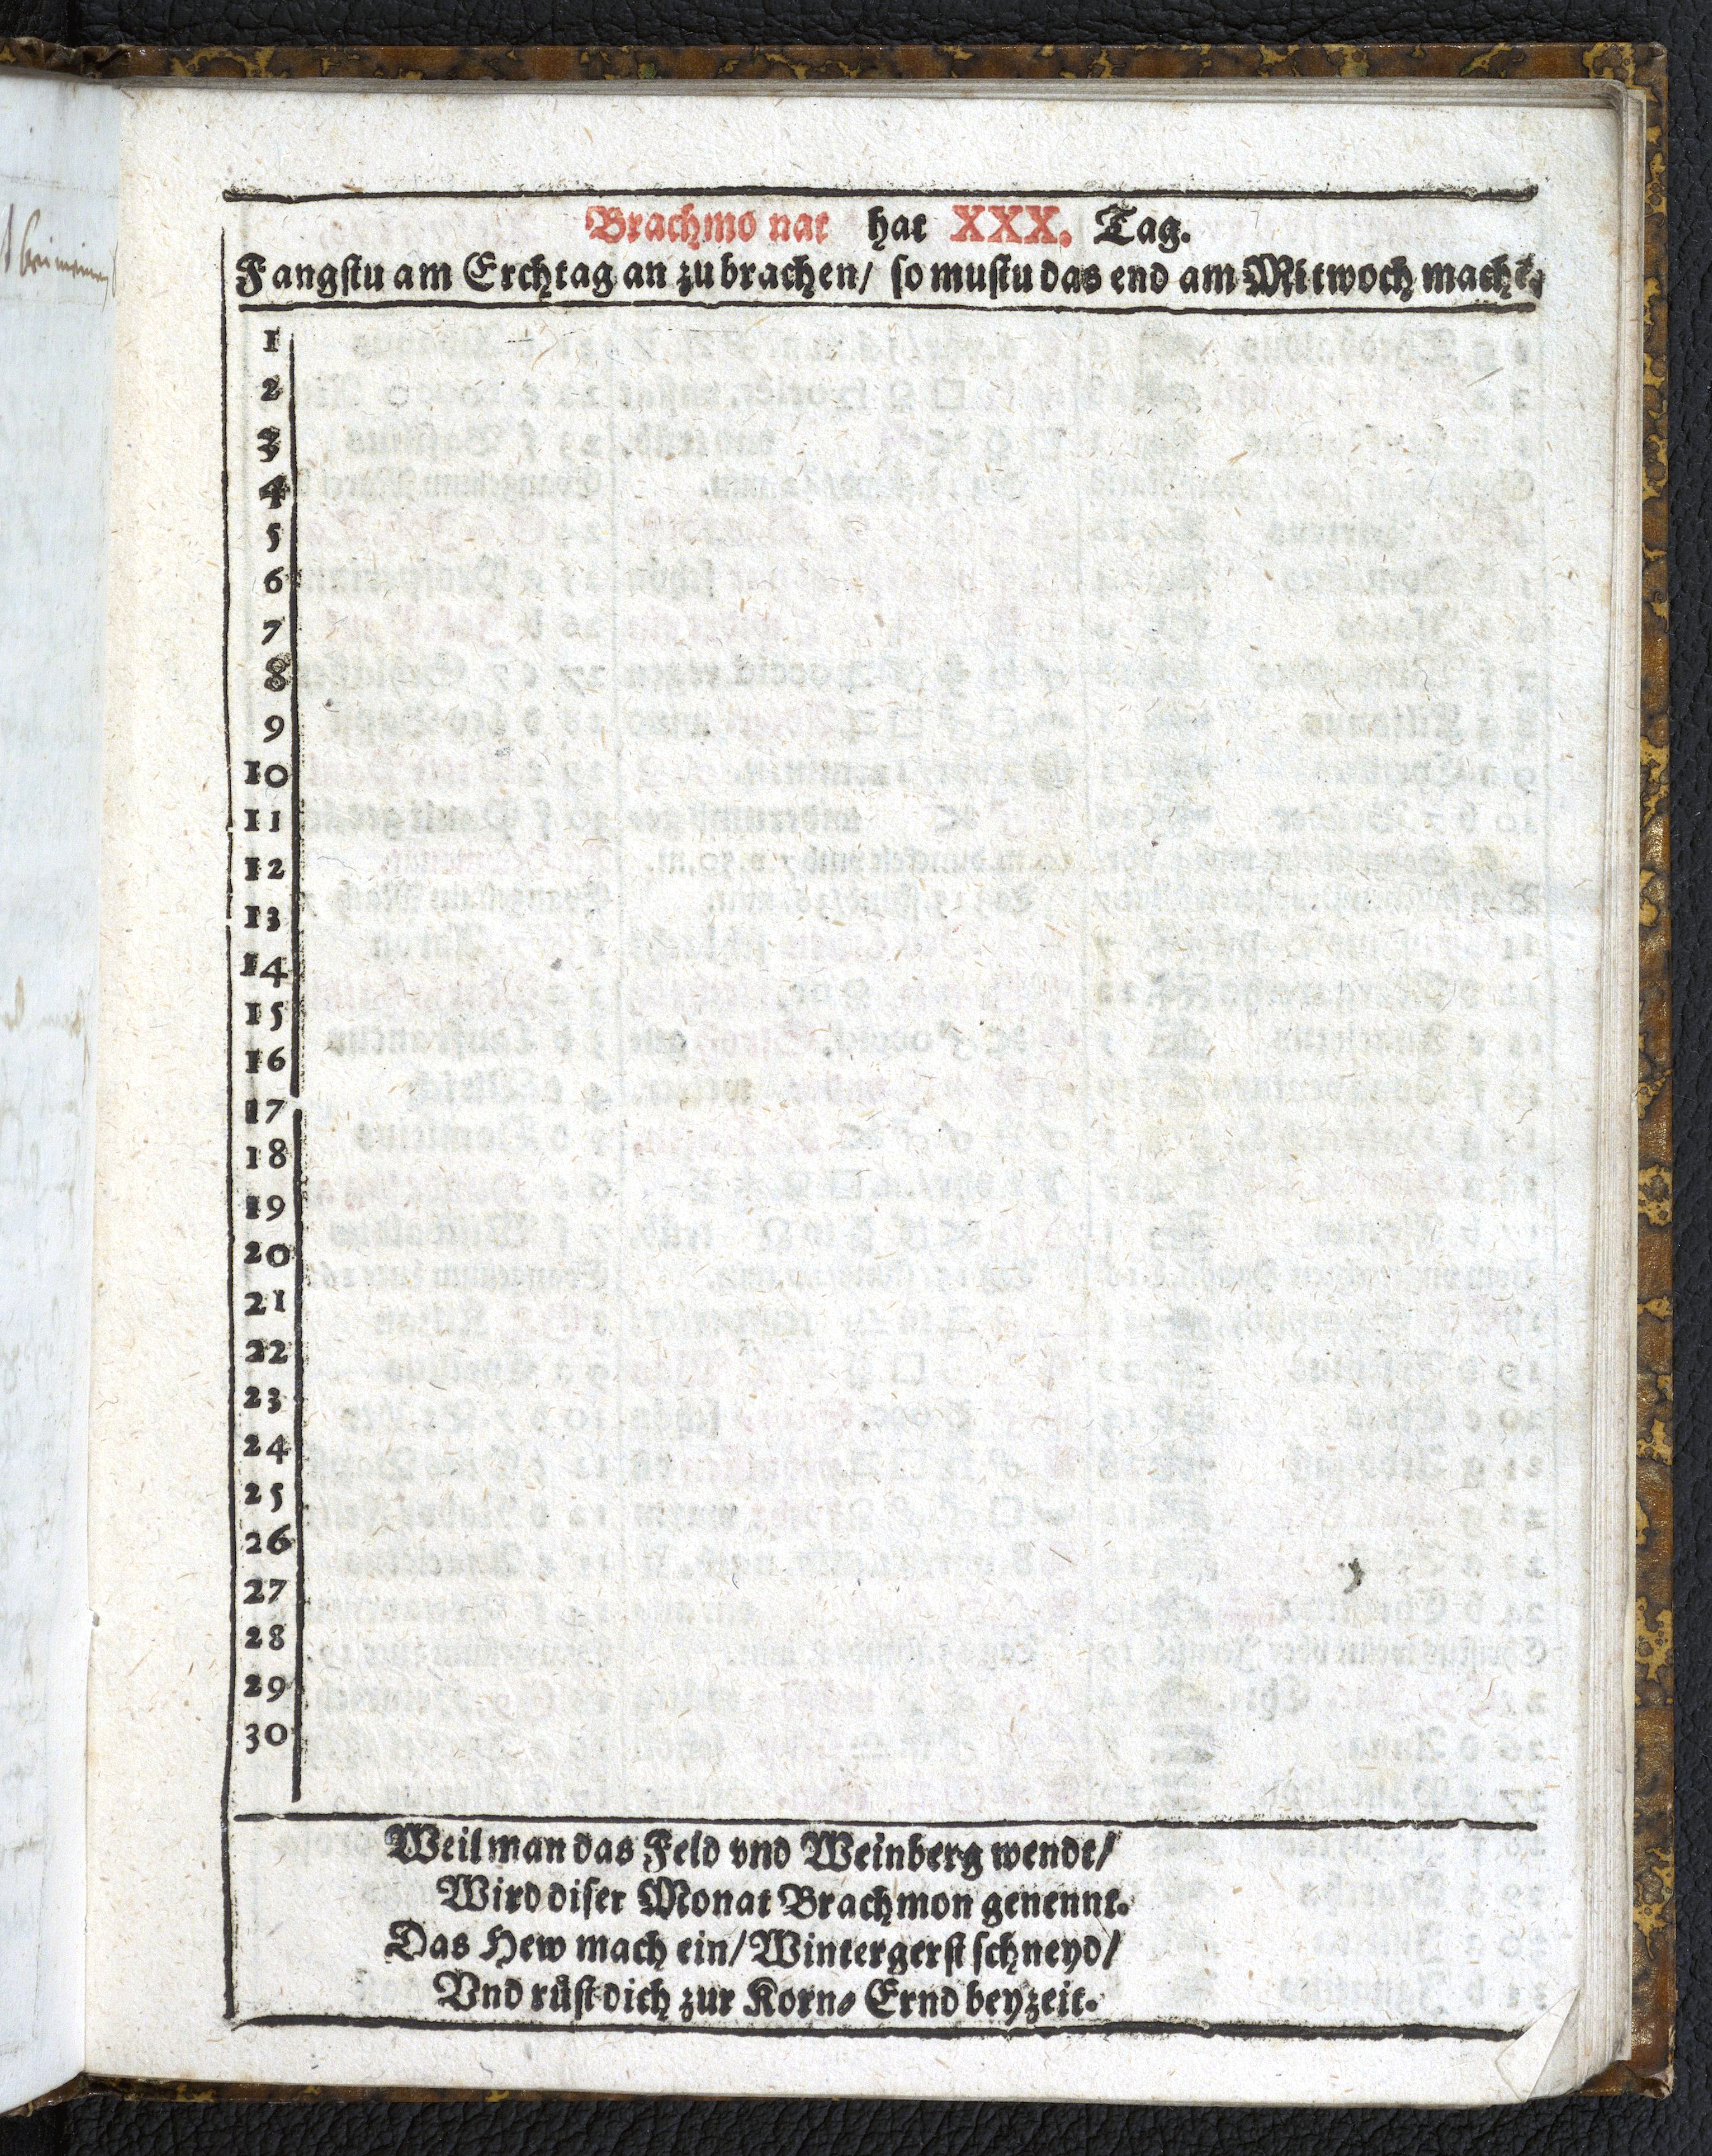 Brachmo nat hat XXX. Tag.
Fangstu am Erchtag an zu brachen/ so mustu das end am Mitwoch machē.
1
2
3
4
5
6
7
8
9
10
11
12
13
14
15
16
17
18
19
20
21
22
23
24
25
26
27
28
29
30
Weil man das Feld vnd Weinberg wendt/
Wird diser Monat Brachmon genennt.
Das Hew mach ein/ Wintergerst schneyd/
Vnd rüst dich zur Korn- Ernd beyzeit.